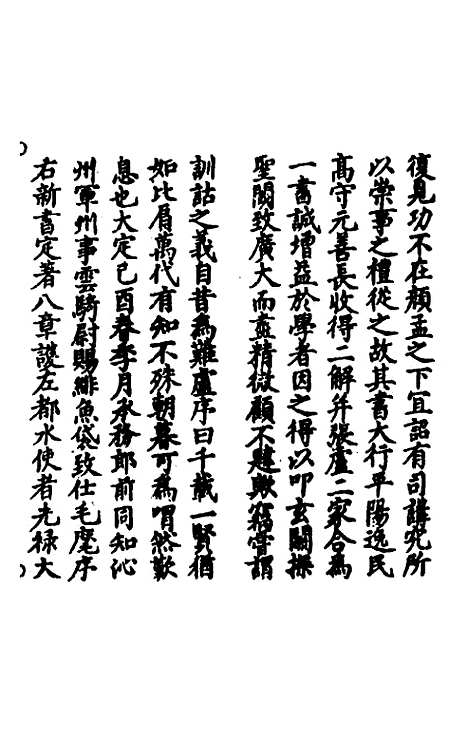 復見功不在顏孟之下宜詔有司講究所
以崇事之禮從之故其書大行平陽逸民
髙守元善長收得二解并張盧二家合為
一書誠增益於學者因之得以叩玄關探
聖閫致廣大而盡精微顧不韙歟竊嘗謂
訓詁之義自昔為難盧序曰千載一賢猶
如比肩萬代有知不殊朝暮可為喟然歎
息也大定己酉春季月承務郎前同知沁
州軍州事雲騎尉賜緋魚袋致仕毛麾序
右新書定著八章護左都水使者光禄大